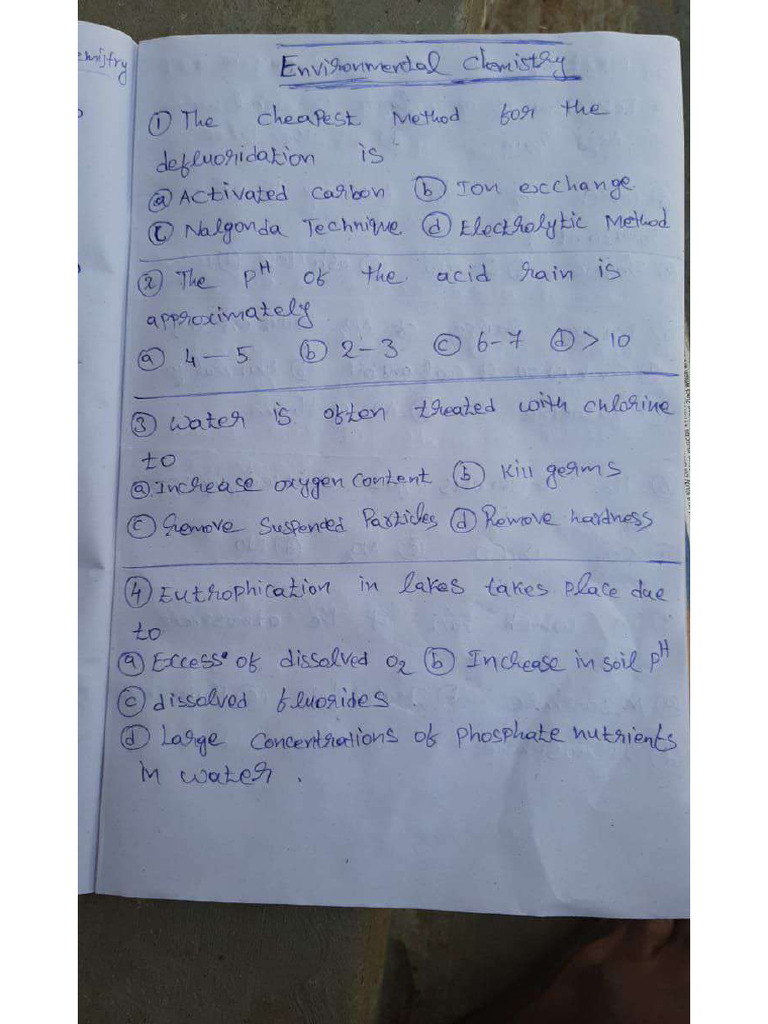 emistry
Environmental Chemistry
① The cheapest Method for the
defluoridation is
ⓐ Activated carbon ⓑ Ion excchange
ⓒ Nalgonda Technique ⓓ Electrolytic Method
② The pH of the acid rain is
approximately
ⓐ 4-5 ⓑ 2-3 ⓒ 6-7 ⓓ >10
③ Water is often treated with chlorine
to
ⓐ Increase oxygen content ⓑ Kill germs
ⓒ Remove suspended Particles ⓓ Remove hardness
④ Eutrophication in lakes takes place due
to
ⓐ Excess of dissolved O2 ⓑ Increase in soil pH
ⓒ dissolved fluorides.
ⓓ Large concentrations of phosphate nutrients
in water.